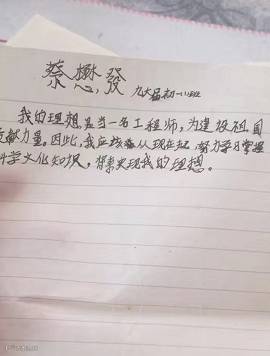 蔡懋發 九六届初一11班
我的理想是当一名工程师，为建设祖国
贡献力量。因此，我应该从现在起，努力学习掌握
科学文化知识，来实现我的理想。